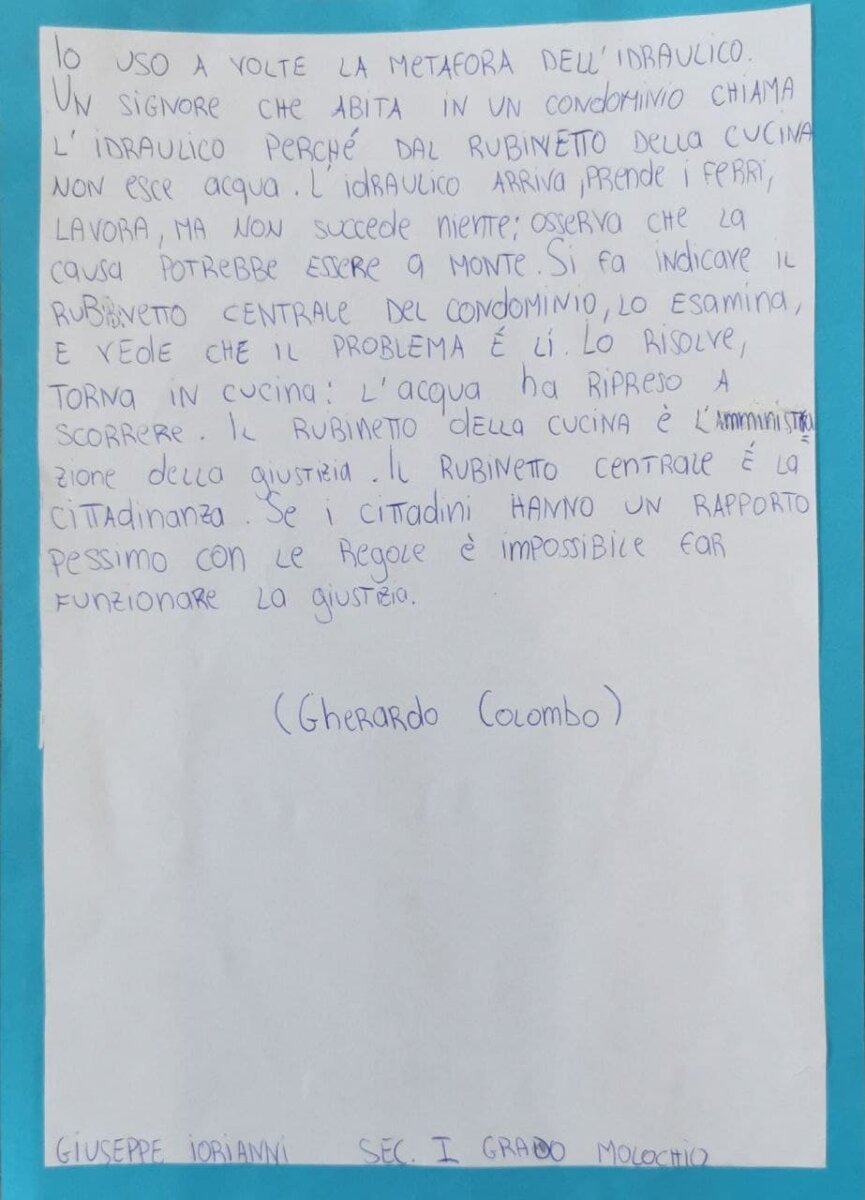 Io USO A VOLTE LA METAFORA DELL'IDRAULICO.
UN SIGNORE CHE ABITA IN UN CONDOMINIO CHIAMA
L'IDRAULICO PERCHÉ DAL RUBINETTO DELLA CUCINA
NON esce acqua. L'idRAULICO ARRIVA, PRENDE i FERRI,
LAVORA, MA NON succede niente; osserva CHE LA
causa POTREBBE ESSERE a MONTE. Si fa indicare il
RUBINETTO CENTRALE DEL CONDOMINIO, LO ESAMINA,
E VEDE CHE IL PROBLEMA É LÍ. LO RISOLVE,
TORNA IN CUCINA: L'acqua ha RIPRESO A
SCORRERE. IL RUBINETTO dELLA CUCINA è L'AMMINISTRA
zione della giustizia. IL RUBINETTO CENTRALE É LA
CITTAdinanza. Se i CITTAdini HANNO UN RAPPORTO
pessimo con LE Regole è impossibile FAR
FUNZIONARE LA giustizia.
(GHERARDO COLOMBO)
GIUSEPPE IORIANNI SEC. I GRADO MOLOCHIO